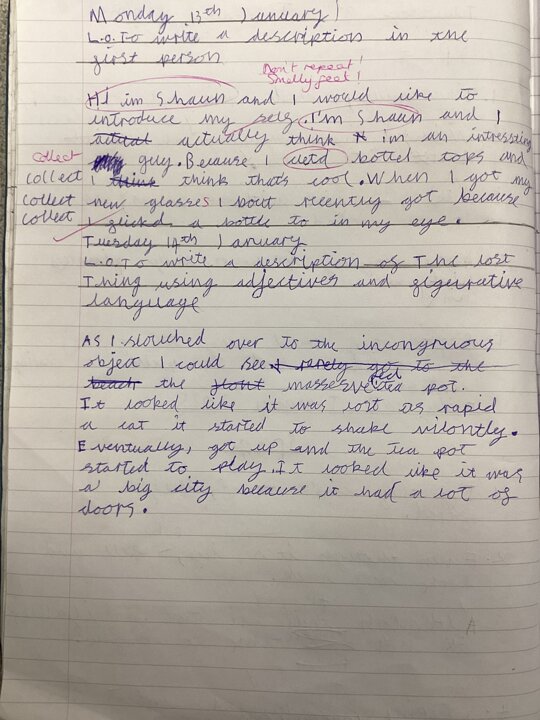 Monday 13th January
L.O. To write a description in the
first person
Don't repeat!
Smelly feet!
Hi im Shaun and I would like to
introduce my self. I'm Shaun and I
actual actually think im an intressting
collect guy. Because I cletd bottel tops and
collect I think think that's cool. When I got my
collect new glasses I bout recently got because
collect I flicked a bottle to in my eye.
Tuesday 14th January
L.O. To write a description of The lost
Thing using adjectives and figurative
language
As I slouched over to the incongruous
object I could see I rarely go to the
beach the giant massesve red tea pot.
It looked like it was lost as rapid
a cat it started to shake vilontly.
Eventually, got up and the tea pot
started to play. It looked like it was
a big city because it had a lot of
doors.